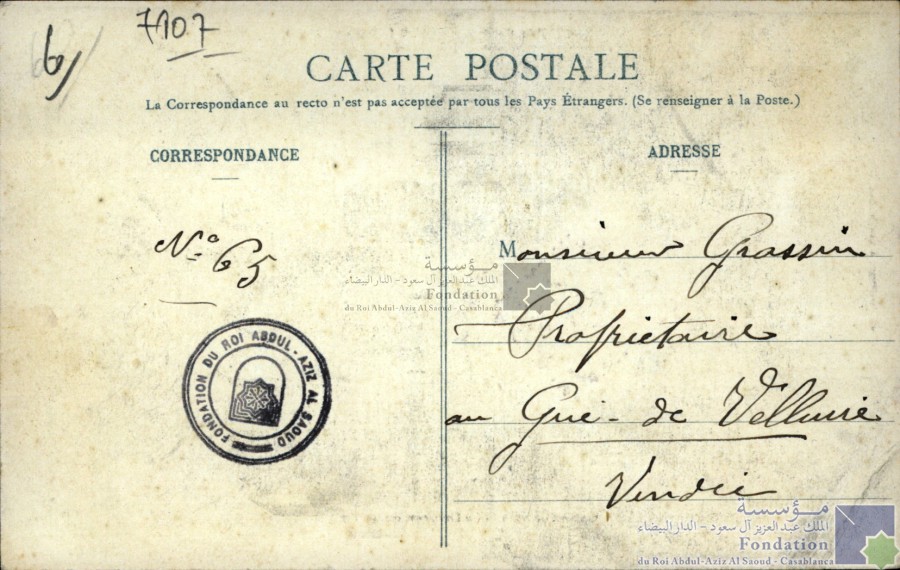 6
7107
CARTE POSTALE
La Correspondance au recto n'est pas acceptée par tous les Pays Étrangers. (Se renseigner à la Poste.)
CORRESPONDANCE
ADRESSE
Nº 65
Monsieur Grassin
Propriétaire
au Gué-de Velluire
Vendée
مؤسسة
الملك عبد العزيز آل سعود - الدار البيضاء
Fondation
du Roi Abdul-Aziz Al Saoud - Casablanca
FONDATION DU ROI ABDUL-AZIZ AL SAOUD
مؤسسة
الملك عبد العزيز آل سعود - الدار البيضاء
Fondation
du Roi Abdul-Aziz Al Saoud - Casablanca